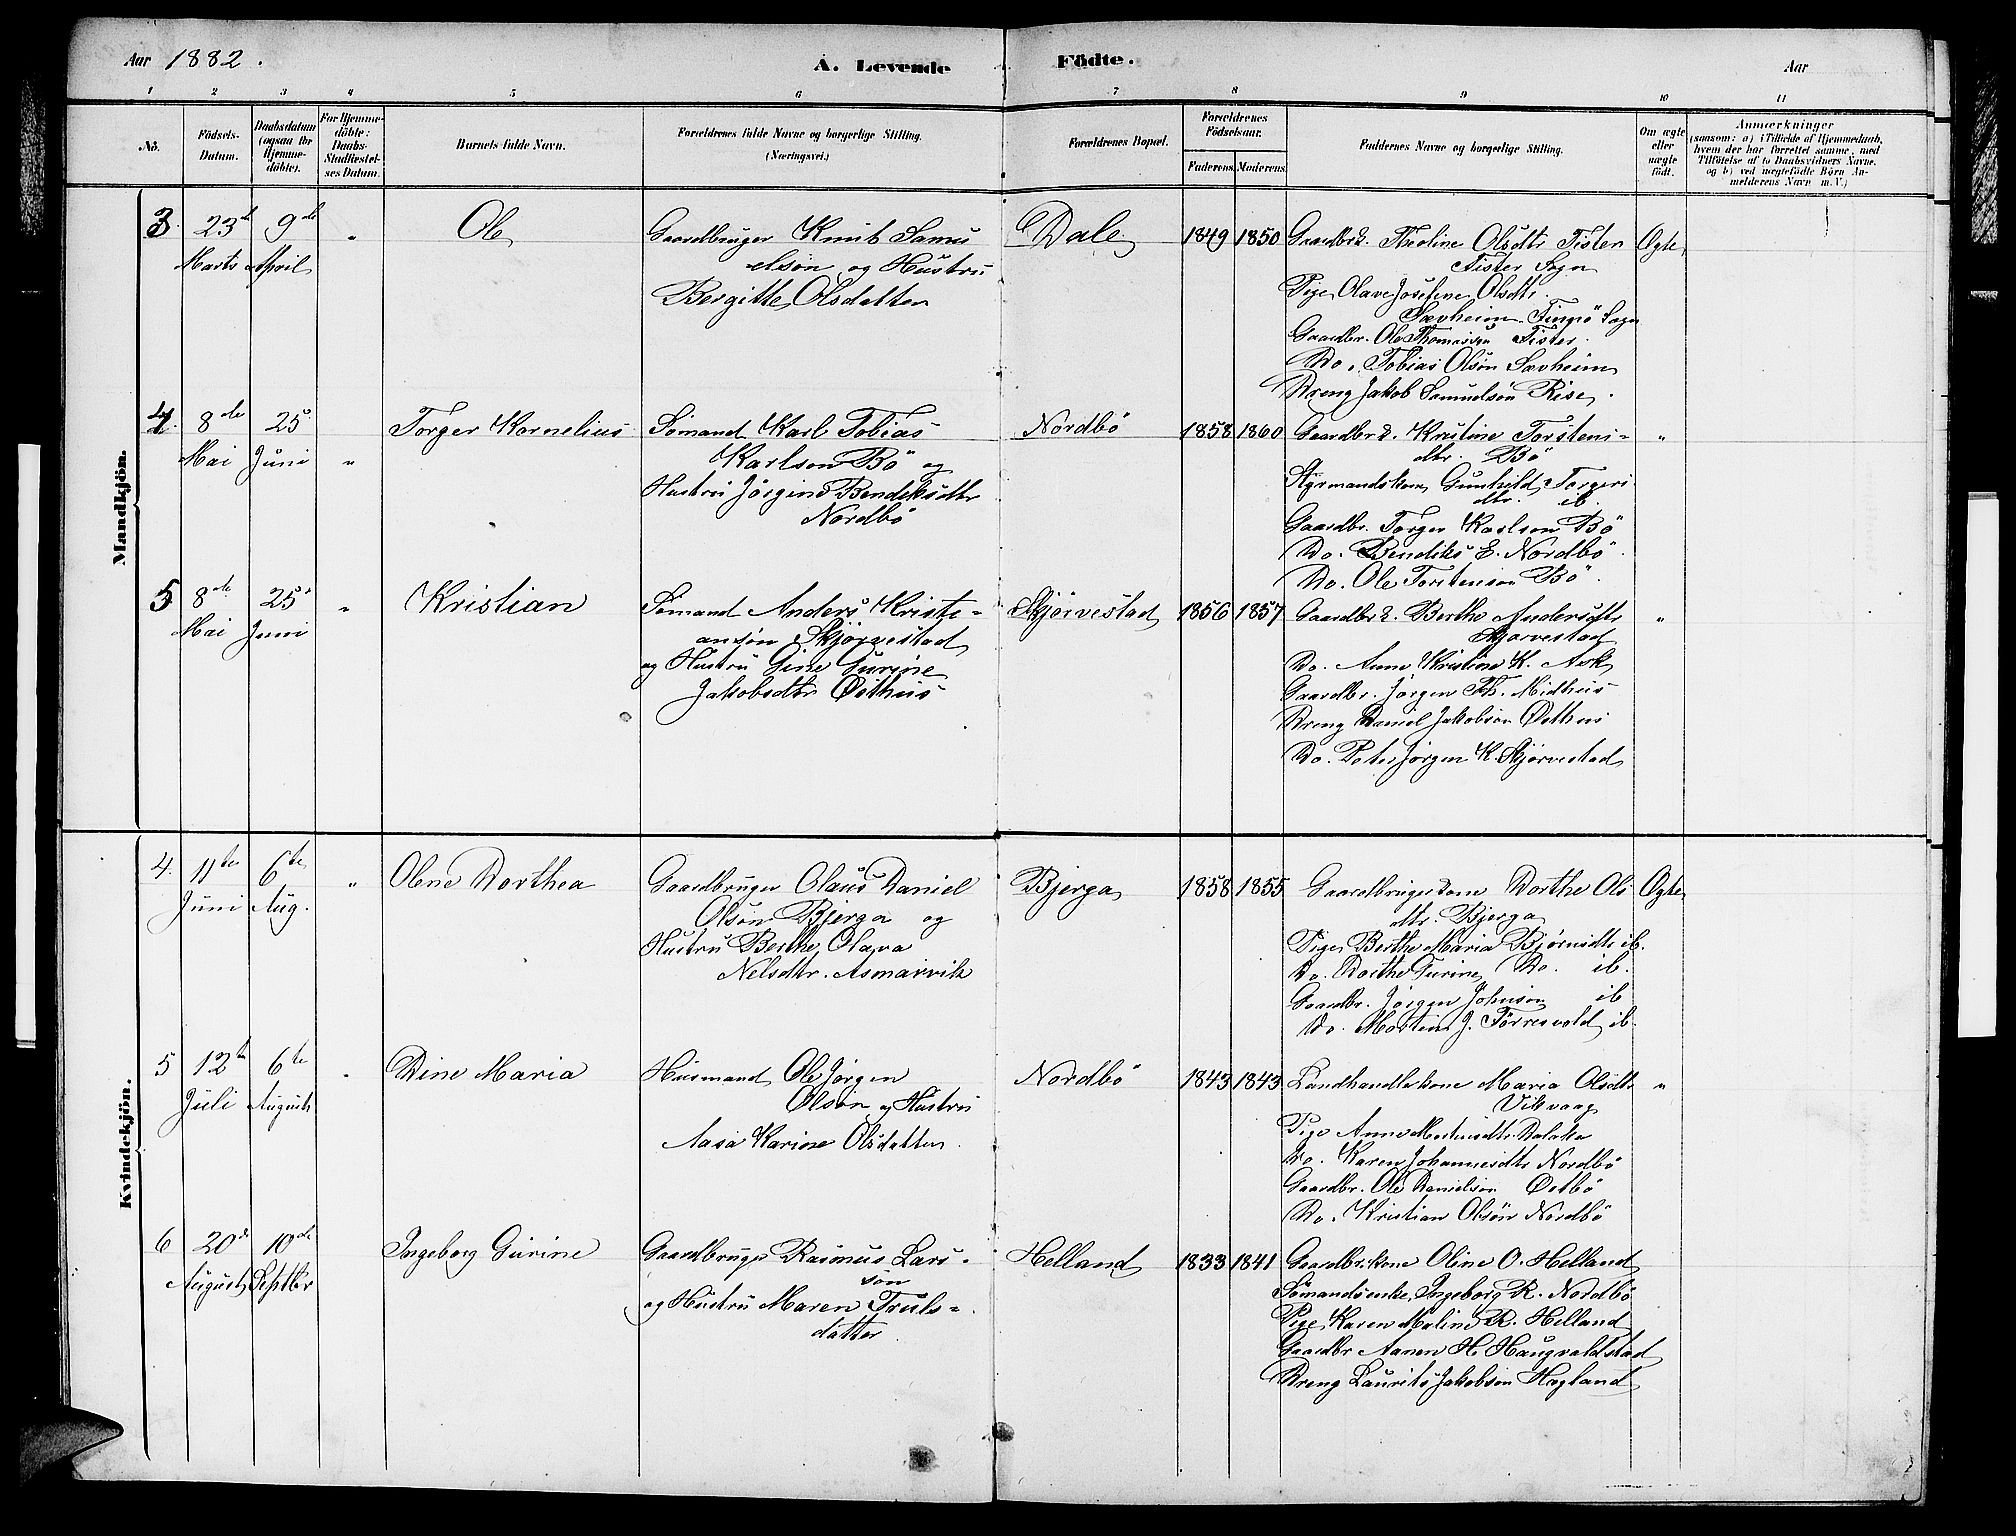 Aar 1882.
A. Levende Födte.
Aar
1 2 3 4 5 6 7 8 9 10 11
No.
Födsels-Datum.
Daabsdatum (ogsaa for Hjemmedöbte).
For Hjemmedöbte: Daabs-Stadfæstelses Datum.
Barnets fulde Navn.
Forældrenes fulde Navne og borgerlige Stilling.
(Næringsvei.)
Forældrenes Bopæl.
Forældrenes Födselsaar.
Faderens Moderens
Faddernes Navne og borgerlige Stilling.
Om ægte eller uægte födt.
Anmærkninger
(saasom: a) i Tilfælde af Hjemmedaab,
hvem der har forrettet samme, med
Tilföielse af to Daabsvidners Navne.
og b) ved uægtefödte Börn An-
melderens Navn m.V.)
Mandkjön.
3. 23de Marts 9de April " Ole
Gaardbruger Knut Samu
elsön og Hustru
Bergitte Olsdatter
Dale 1849 1850
Gaardbr.k. Tholine Olsdtr Fister
Fister Sogn
Pige Olave Josefine Olsdtr.
Sævheim Fingö Sogn
Gaardbr. Ole Thomassen Fister.
Do. Tobias Olsön Sævheim
Dreng Jakob Samuelsön Rise.
Ægte
4. 8de Mai 25. Juni " Torger Kornelius
Sömand Karl Tobias
Karlson Bö og
Hustru Jörgine Bendiksdtr
Nordbö
Nordbö 1858 1860
Gaardbr.k. Kristine Torstens-
dtr. Bö
Styrmandskone Gunhild Torgers
dtr. ib.
Gaardbr. Torger Karlson Bö
Do. Bendiks E. Nordbö.
Do. Ole Torstenson Bö.
"
5 8de Mai 25. Juni " Kristian
Sömand Anders Kristi-
ansön Skjörvestad
og Hustru Gine Gurine
Jakobsdtr Östhus
Skjörvestad 1856 1857
Gaardbr.k. Berthe Andersdtr
Skjörvestad
Do. Anne Kristine K. Ask
Gaardbr. Jörgen Th. Midhus
Dreng Daniel Jakobsön Östhus
Do. Peter Jörgen K. Skjörvestad
"
Kvindekjön.
4. 11te Juni 6te Aug. " Olene Dorthea
Gaardbruger Olaus Daniel
Olsön Bjerga og
Hustru Berthe Olava
Nelsdtr. Asmarvik
Bjerga 1858 1855
Gaardbrugerkone Dorthe Ols
dtr. Bjerga
Pige Berthe Maria Björnsdtr ib.
Do. Dorthe Gurine Do. ib.
Gaardbr. Jörgen Johnsön ib
Do. Martin J. Förresvold ib.
Ægte
5 12te Juli 6te August " Dine Maria
Husmand Ole Jörgen
Olsön og Hustru
Aasa Karine Olsdatter.
Nordbö 1843 1843
Landhandlekone Maria Olsdtr
Vikvaag
Pige Anne Mortensdtr Dalaker
Do. Karen Johannesdtr Nordbö
Gaardbr. Ole Danielsön Östbö
Do. Kristian Olsön Nordbö
"
6 20de August 10de Septbr Ingeborg Gurine
Gaardbruger Rasmus Lars-
son
og Hustru Maren Truls-
datter.
Helland 1833 1841
Gaardbr.kone Oline O. Helland
Sömandsenke Ingeborg R. Nordbö
Pige Karen Maline R. Helland
Gaardbr Aanen H. Haugvaldstad
Dreng Laurits Jakobsön Hagland